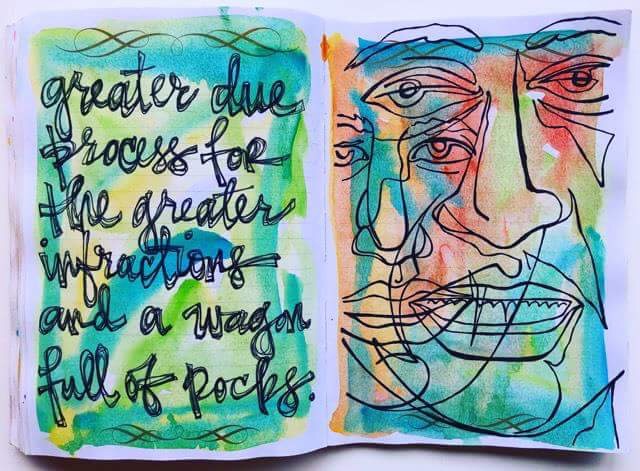 greater due
process for
the greater
infractions
and a wagon
full of rocks.